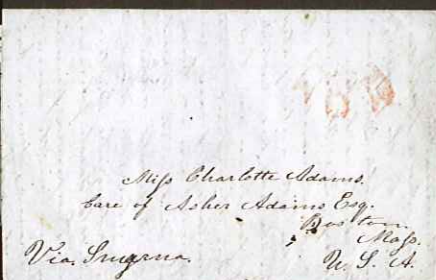 Miss Charlotte Adams.
Care of Asher Adams Esq.
Boston.
Mass.
Via. Smyrna.
U. S. A.